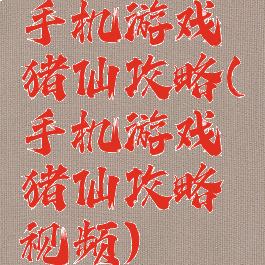 手机游戏
猪仙攻略(
手机游戏
猪仙攻略
视频)